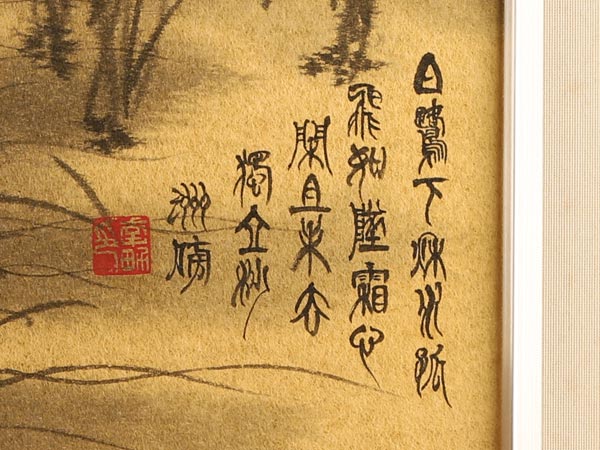 白鷺下秋水孤
飛如墜霜心
閑且未去
獨立沙
洲傍